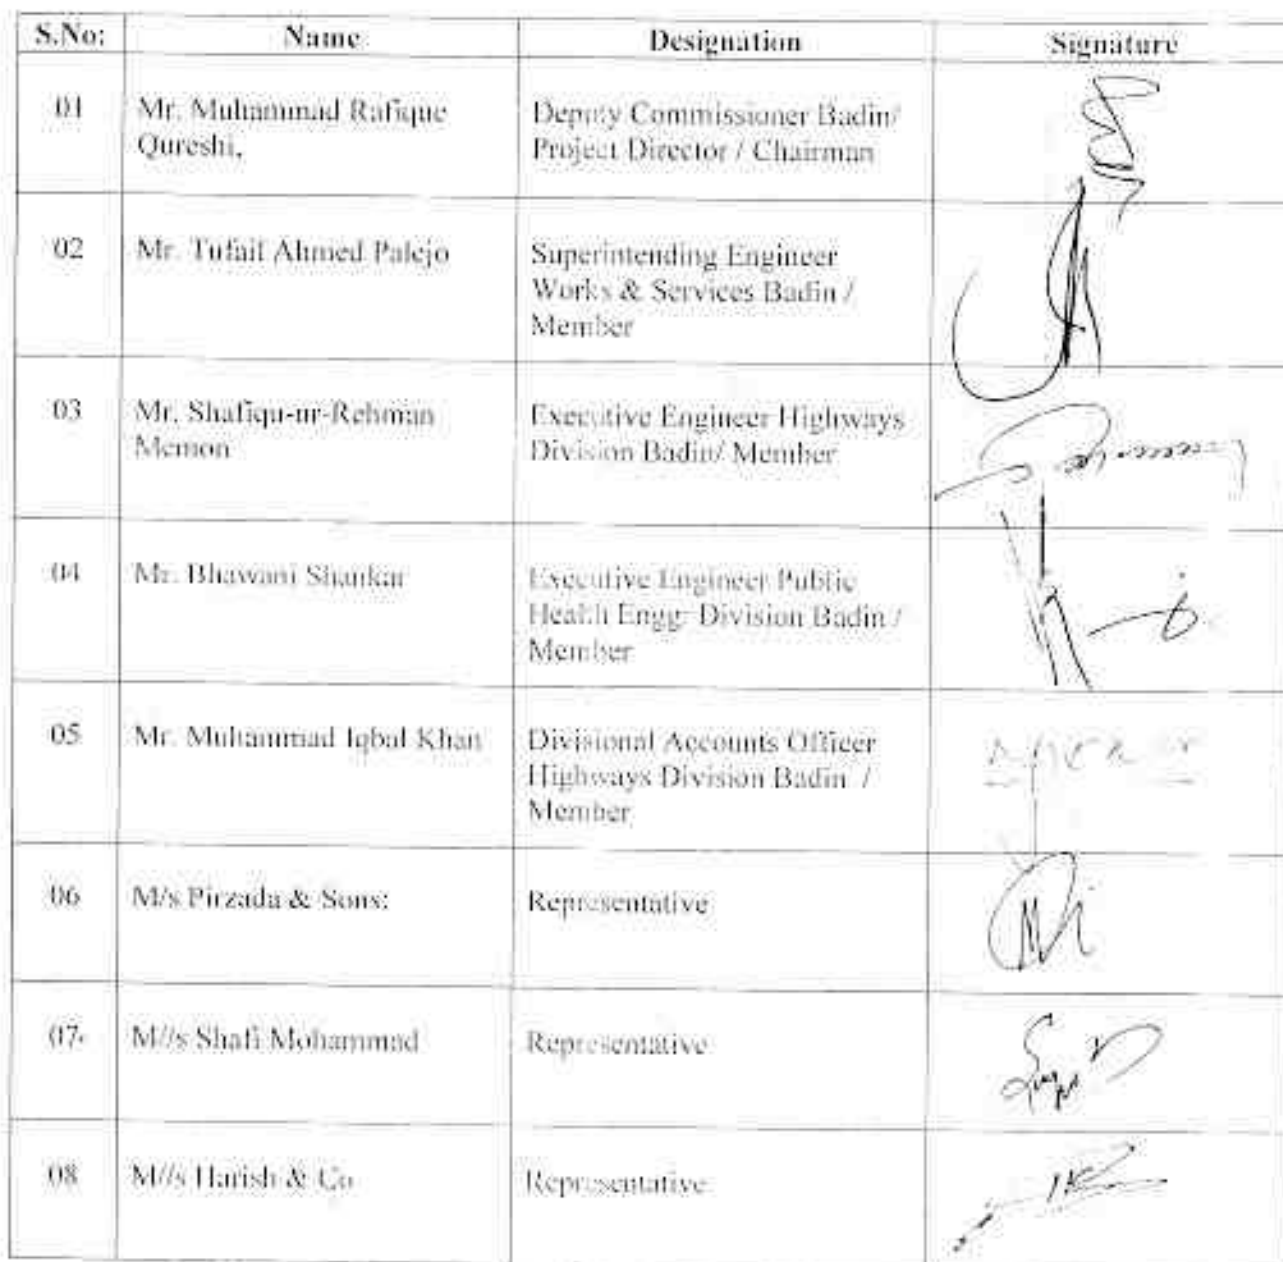 S.No: Name Designation Signature
01 Mr. Muhammad Rafique Deputy Commissioner Badin/
Qureshi, Project Director / Chairman
02 Mr. Tufail Ahmed Palejo Superintending Engineer
Works & Services Badin /
Member
03 Mr. Shafiqu-ur-Rehman Executive Engineer Highways
Memon Division Badin/ Member
04 Mr. Bhawani Shankar Executive Engineer Public
Health Engg: Division Badin /
Member
05 Mr. Muhammad Iqbal Khan Divisional Accounts Officer
Highways Division Badin /
Member
06 M/s Pirzada & Sons: Representative
07 M//s Shafi Mohammad Representative
08 M//s Harish & Co Representative